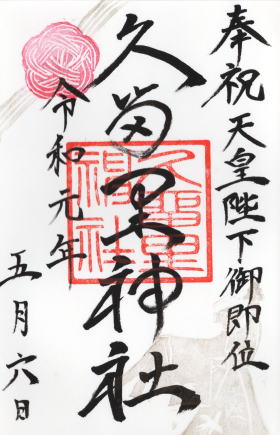 奉祝天皇陛下御即位
久留里神社
令和元年
五月六日
久留里
神社